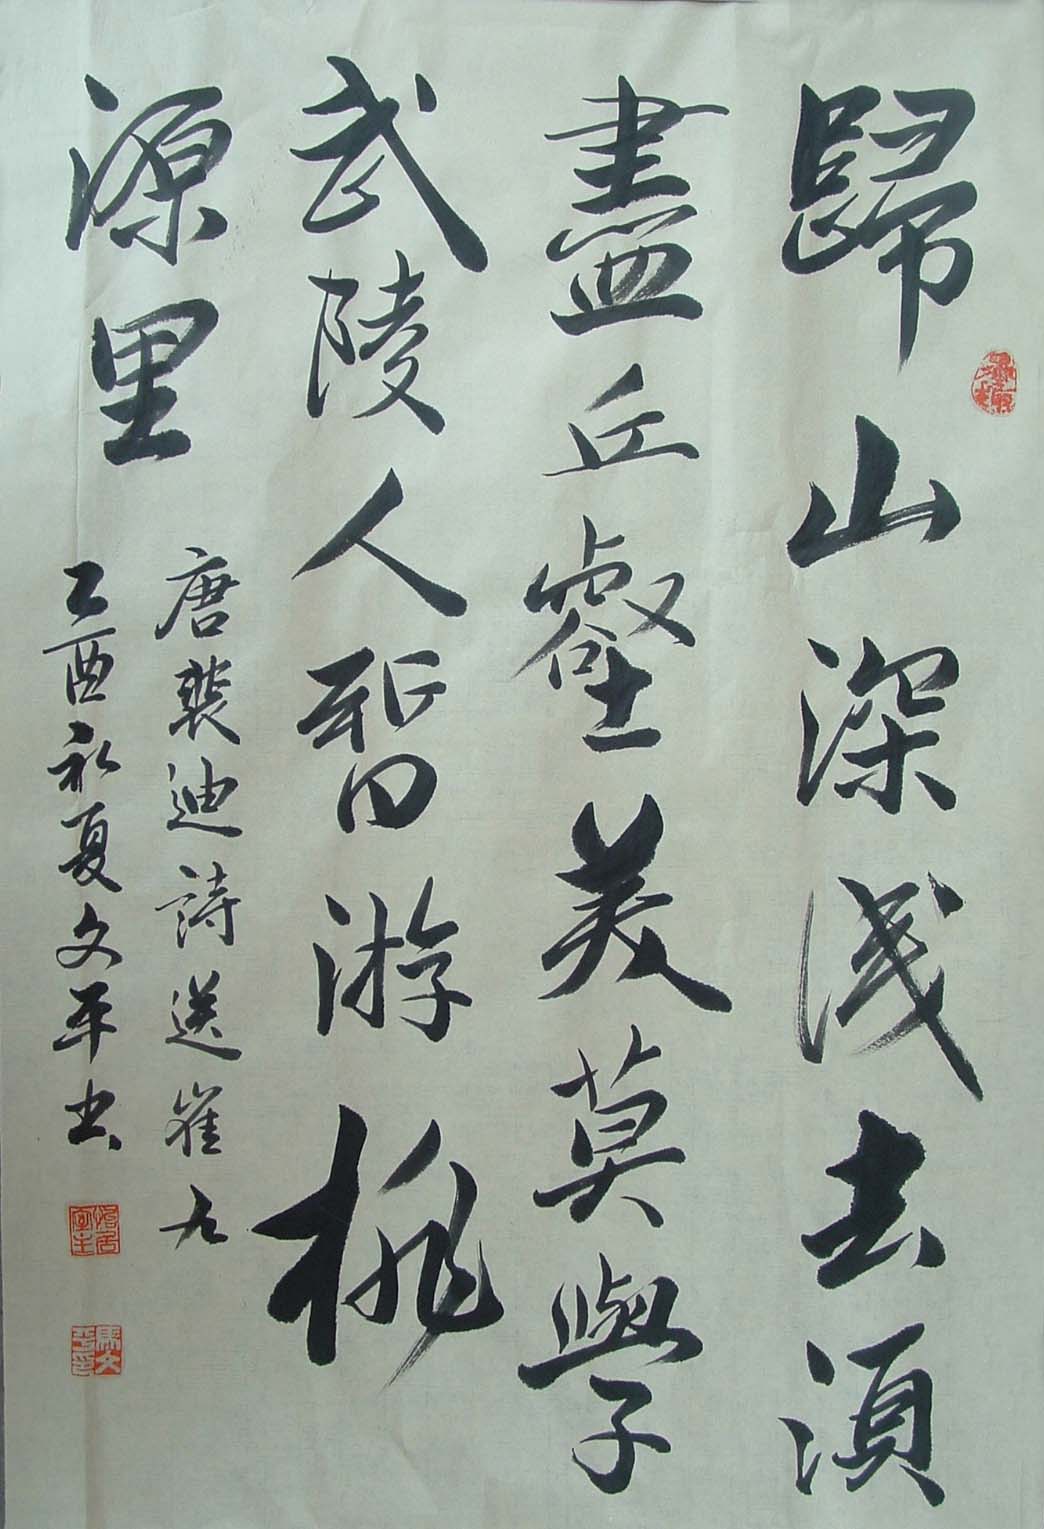 歸山深浅去須
盡丘壑美莫學
武陵人暫游桃
源里
唐裴迪詩送崔九
乙酉初夏文平书